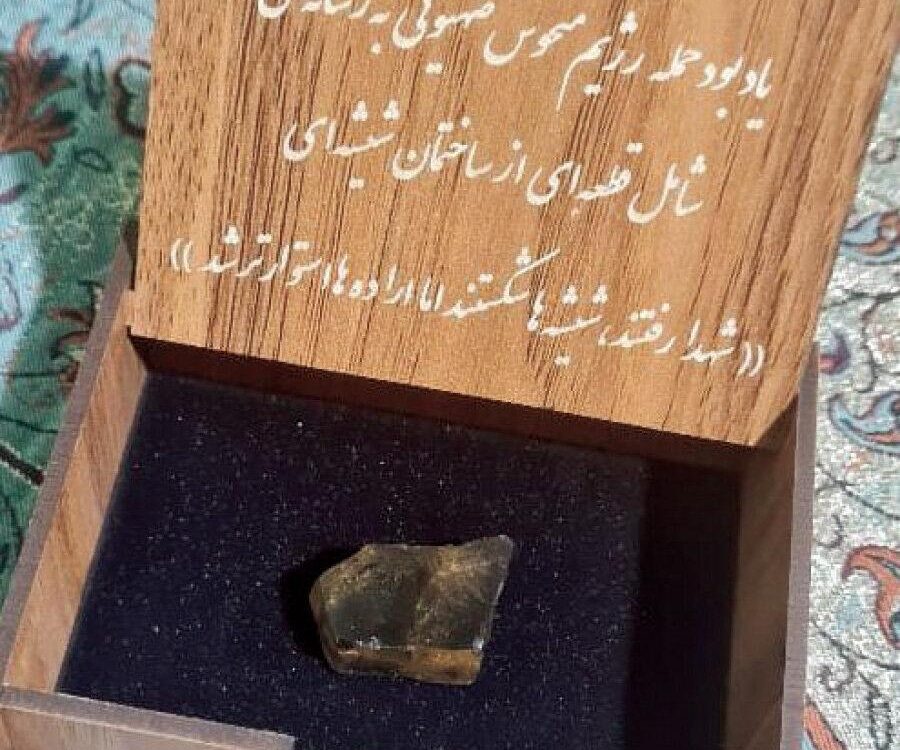 یادبود حمله رژیم منحوس صهیونی به رسانه ملی
شامل قطعه ای از ساختمان شیشه ای
((شهدا رفتند، شیشه ها شکستند اما اراده ها استوارتر شد))